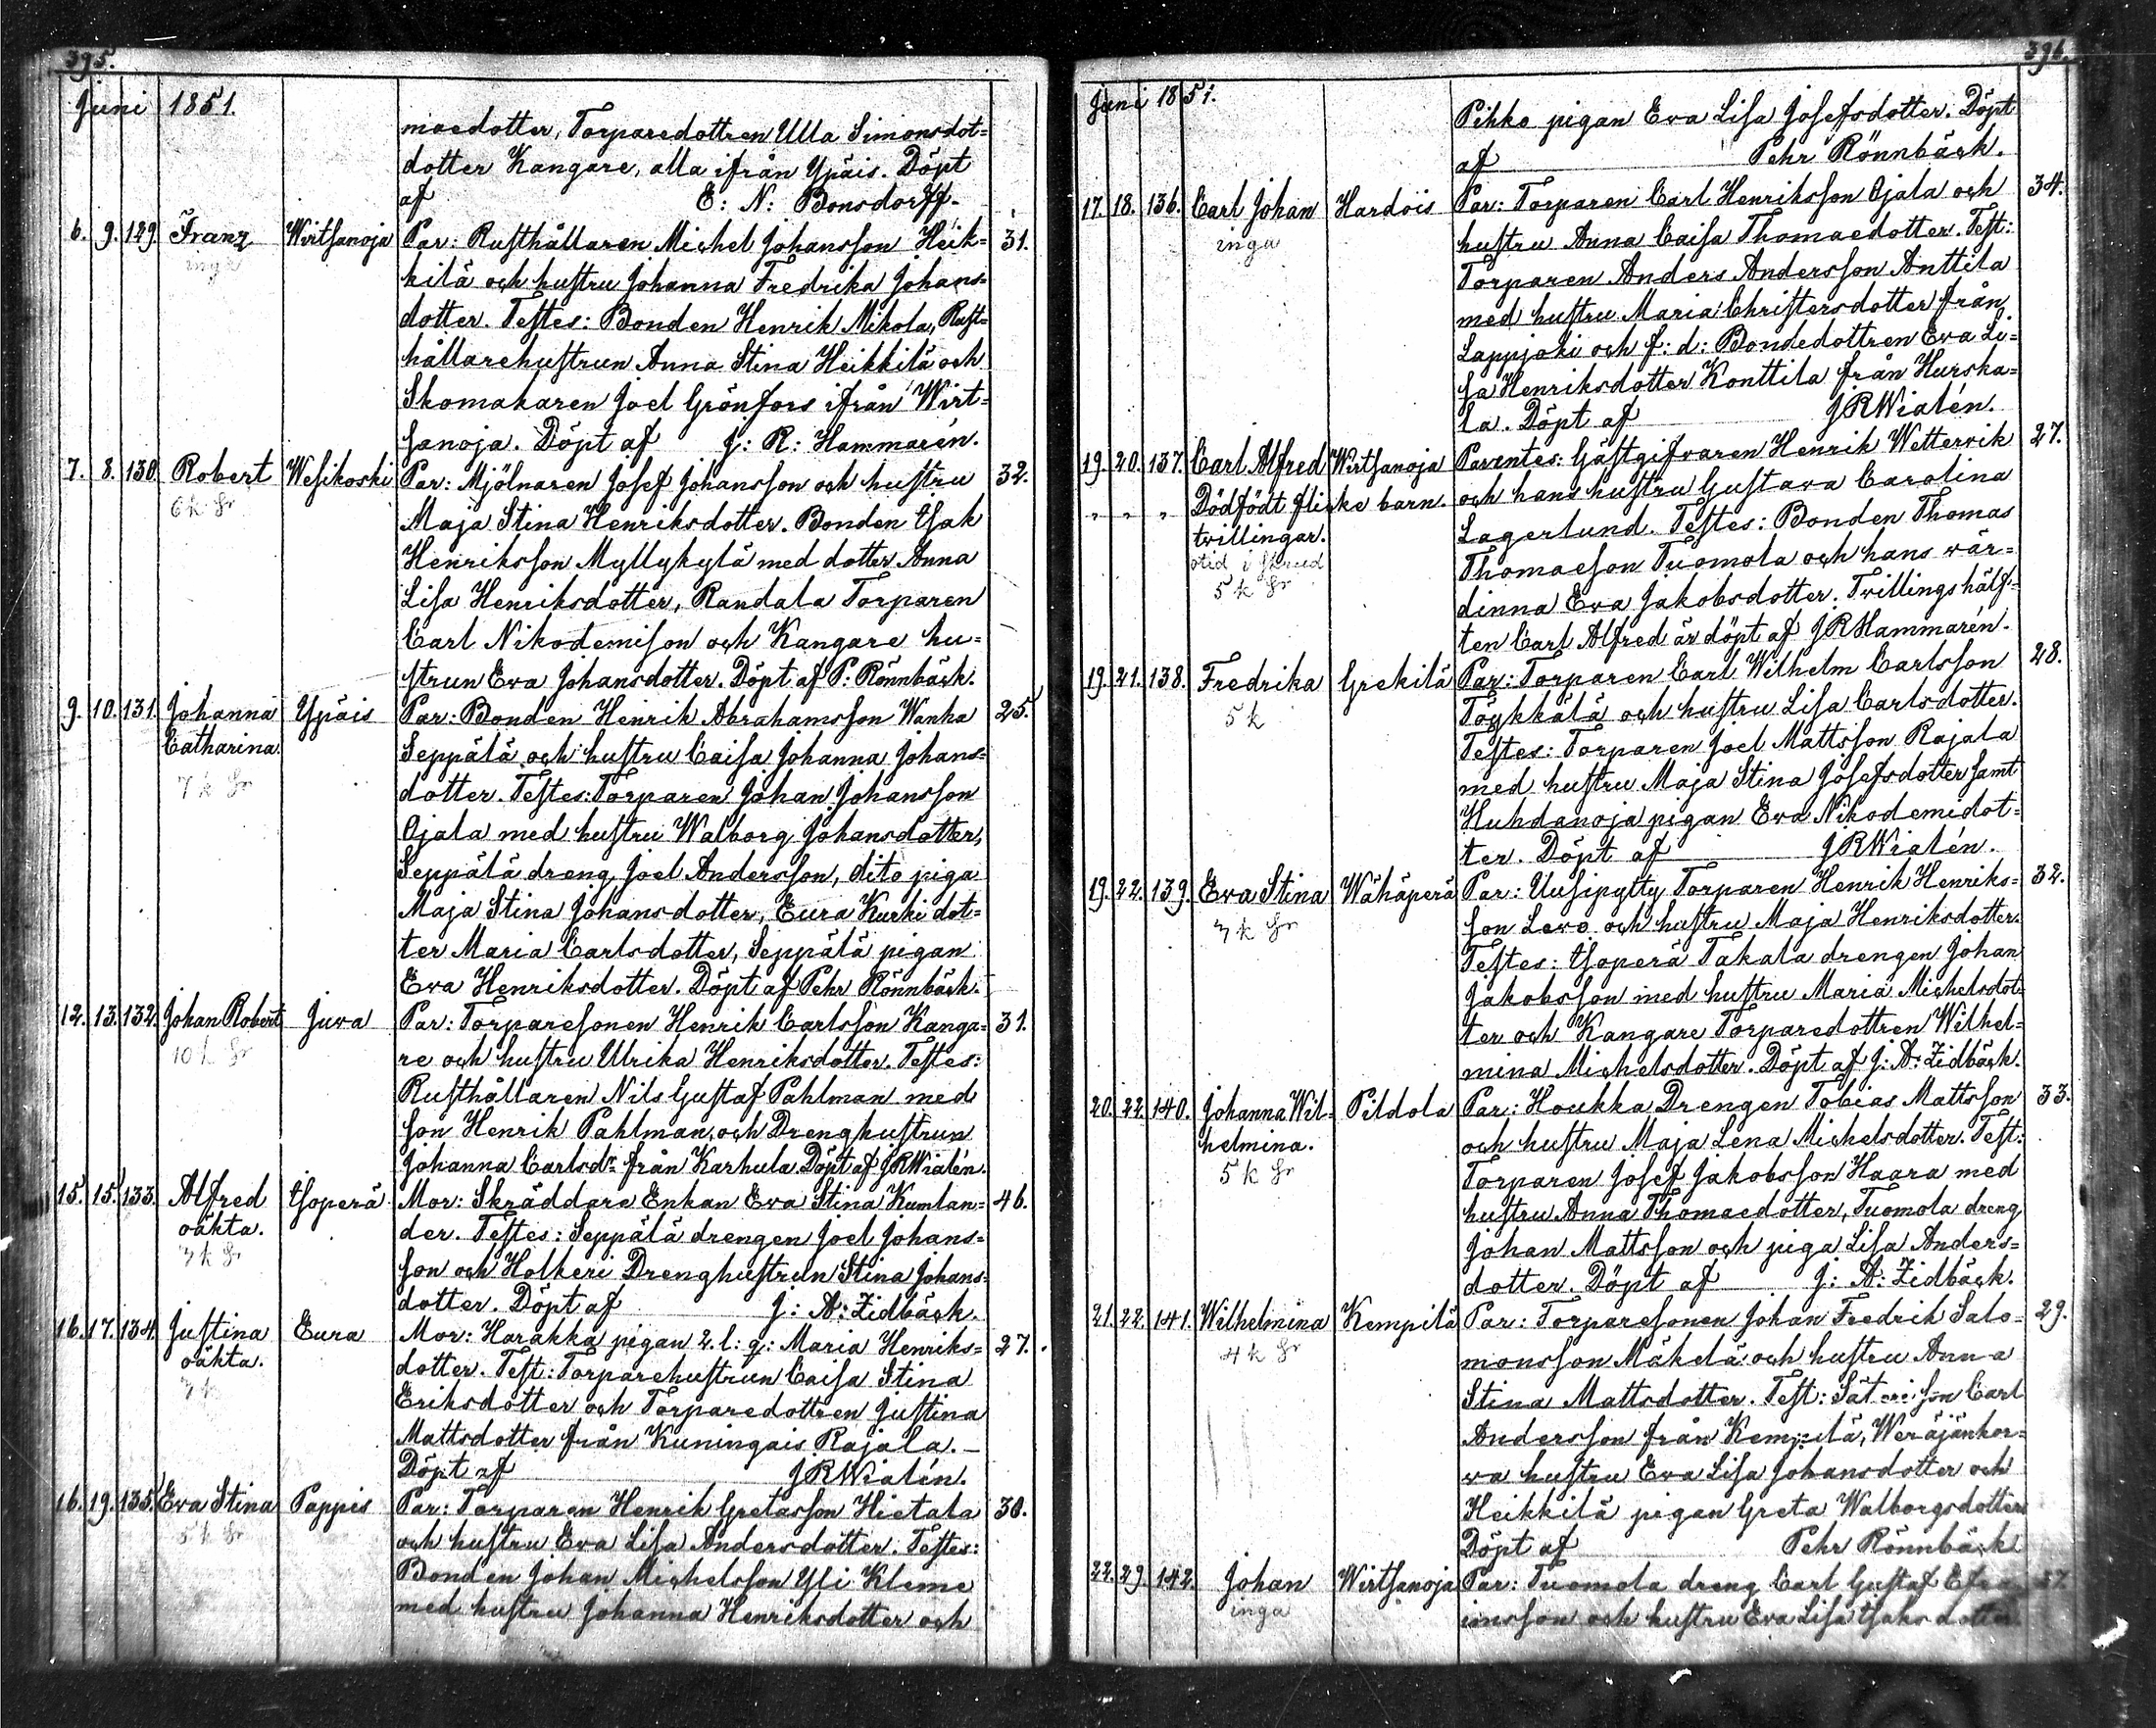 395.
Juni 1851.
maedotter, Torparedottren Ulla Simonsdot=
dotter Kangare, alla ifrån Ypäis. Döpt
af E: N: Bonsdorff.
6. 9. 129. Franz Wirtsanoja Par: Rusthållaren Michel Johansson Heik= 31.
inga kilä och hustru Johanna Fredrika Johans=
dotter. Testes: Bonden Henrik Mikola, Rust=
hållarehustrun Anna Stina Heikkilä och
Skomakaren Joel Grönfors ifrån Wirt=
sanoja. Döpt af J: R: Hammarén.
7. 8. 130. Robert Wesikoski Par: Mjölnaren Josef Johansson och hustru 32.
6 k Sr Maja Stina Henriksdotter. Bonden Isak
Henriksson Myllykylä med dotter Anna
Lisa Henriksdotter, Randala Torparen
Carl Nikodemisson och Kangare hu=
strun Eva Johansdotter. Döpt af P: Rönnbäck.
9. 10. 131. Johanna Ypäis Par: Bonden Henrik Abrahamsson Wanha 25.
Catharina. Seppälä och hustru Caisa Johanna Johans=
7 k Sr dotter. Testes: Torparen Johan Johansson
Ojala med hustru Walborg Johansdotter,
Seppälä dreng Joel Andersson, dito piga
Maja Stina Johansdotter, Eura Kurki dot=
ter Maria Carlsdotter, Seppälä pigan
Eva Henriksdotter. Döpt af Pehr Rönnbäck.
12. 13. 132. Johan Robert Juva Par: Torparesonen Henrik Carlsson Kanga= 31.
10 k Sr re och hustru Ulrika Henriksdotter. Testes:
Rusthållaren Nils Gustaf Pahlman med
son Henrik Pahlman, och Drenghustrun
Johanna Carlsdr från Karhula. Döpt af JRWialén.
15. 15. 133. Alfred Isoperä Mor: Skräddare Enkan Eva Stina Kumlan= 46.
oäkta. der. Testes: Seppälä drengen Joel Johans=
7 k Sr son och Holkeri Drenghustrun Stina Johans=
dotter. Döpt af J: A: Lidbäck.
16. 17. 134. Justina Eura Mor: Harakka pigan 2. l: g: Maria Henriks= 27.
oäkta. dotter. Test: Torparehustrun Caisa Stina
7 k Eriksdotter och Torparedottren Justina
Mattsdotter från Kuningais Rajala.
Döpt af JRWialén.
16. 19. 135. Eva Stina Pappis Par: Torparen Henrik Gretasson Hietala 30.
5 k Sr och hustru Eva Lisa Andersdotter. Testes:
Bonden Johan Michelsson Yli Kleme
med hustru Johanna Henriksdotter och
396.
Juni 1851.
Pihko pigan Eva Lisa Josefsdotter. Döpt
af Pehr Rönnbäck.
17. 18. 136. Carl Johan Hardois Par: Torparen Carl Henriksson Ojala och 34.
inga hustru Anna Caisa Thomaedotter. Test:
Torparen Anders Andersson Anttila
med hustru Maria Christersdotter från
Lappjoki och f: d: Bondedottren Eva Li=
sa Henriksdotter Konttila från Hurska=
la. Döpt af JRWialén.
19. 20. 137. Carl Alfred Wirtsanoja Parentes: Gästgifvaren Henrik Wettervik 27.
" " " Dödfödt flicke barn. och hans hustru Gustava Carolina
tvillingar. Lagerlund. Testes: Bonden Thomas
5 k Sr Thomaeson Tuomola och hans vär=
dinna Eva Jakobsdotter. Tvillingshälf=
ten Carl Alfred är döpt af JRHammarén.
19. 21. 138. Fredrika Grekilä Par: Torparen Carl Wilhelm Carlsson 28.
5 k Töykkälä och hustru Lisa Carlsdotter.
Testes: Torparen Joel Mattsson Rajala
med hustru Maja Stina Josefsdotter samt
Huhdanoja pigan Eva Nikodemidot=
ter. Döpt af JRWialén.
19. 22. 139. Eva Stina Wähäperä Par: Uusipytty Torparen Henrik Henriks= 32.
7 k Sr son Levo och hustru Maja Henriksdotter.
Testes: Isoperä Takala drengen Johan
Jakobsson med hustru Maria Michelsdot=
ter och Kangare Torparedottren Wilhel=
mina Michelsdotter. Döpt af J: A: Lidbäck.
20. 22. 140. Johanna Wil= Pildola Par: Houkka Drengen Tobias Mattsson 33.
helmina. och hustru Maja Lena Michelsdotter. Test:
5 k Sr Torparen Josef Jakobsson Haara med
hustru Anna Thomaedotter, Tuomola dreng
Johan Mattsson och piga Lisa Anders=
dotter. Döpt af J: A: Lidbäck.
21. 22. 141. Wilhelmina Kempilä Par: Torparesonen Johan Fredrik Salo= 29.
4 k Sr monsson Mäkelä och hustru Anna
Stina Mattsdotter. Test: Säteri son Carl
Andersson från Kempilä, Weräjänkor=
va hustru Eva Lisa Johansdotter och
Heikkilä pigan Greta Walborgsdotter
Döpt af Pehr Rönnbäck
22. 29. 142. Johan Wirtsanoja Par: Tuomola dreng Carl Gustaf Efra 37
inga imsson och hustru Eva Lisa Isaksdotter